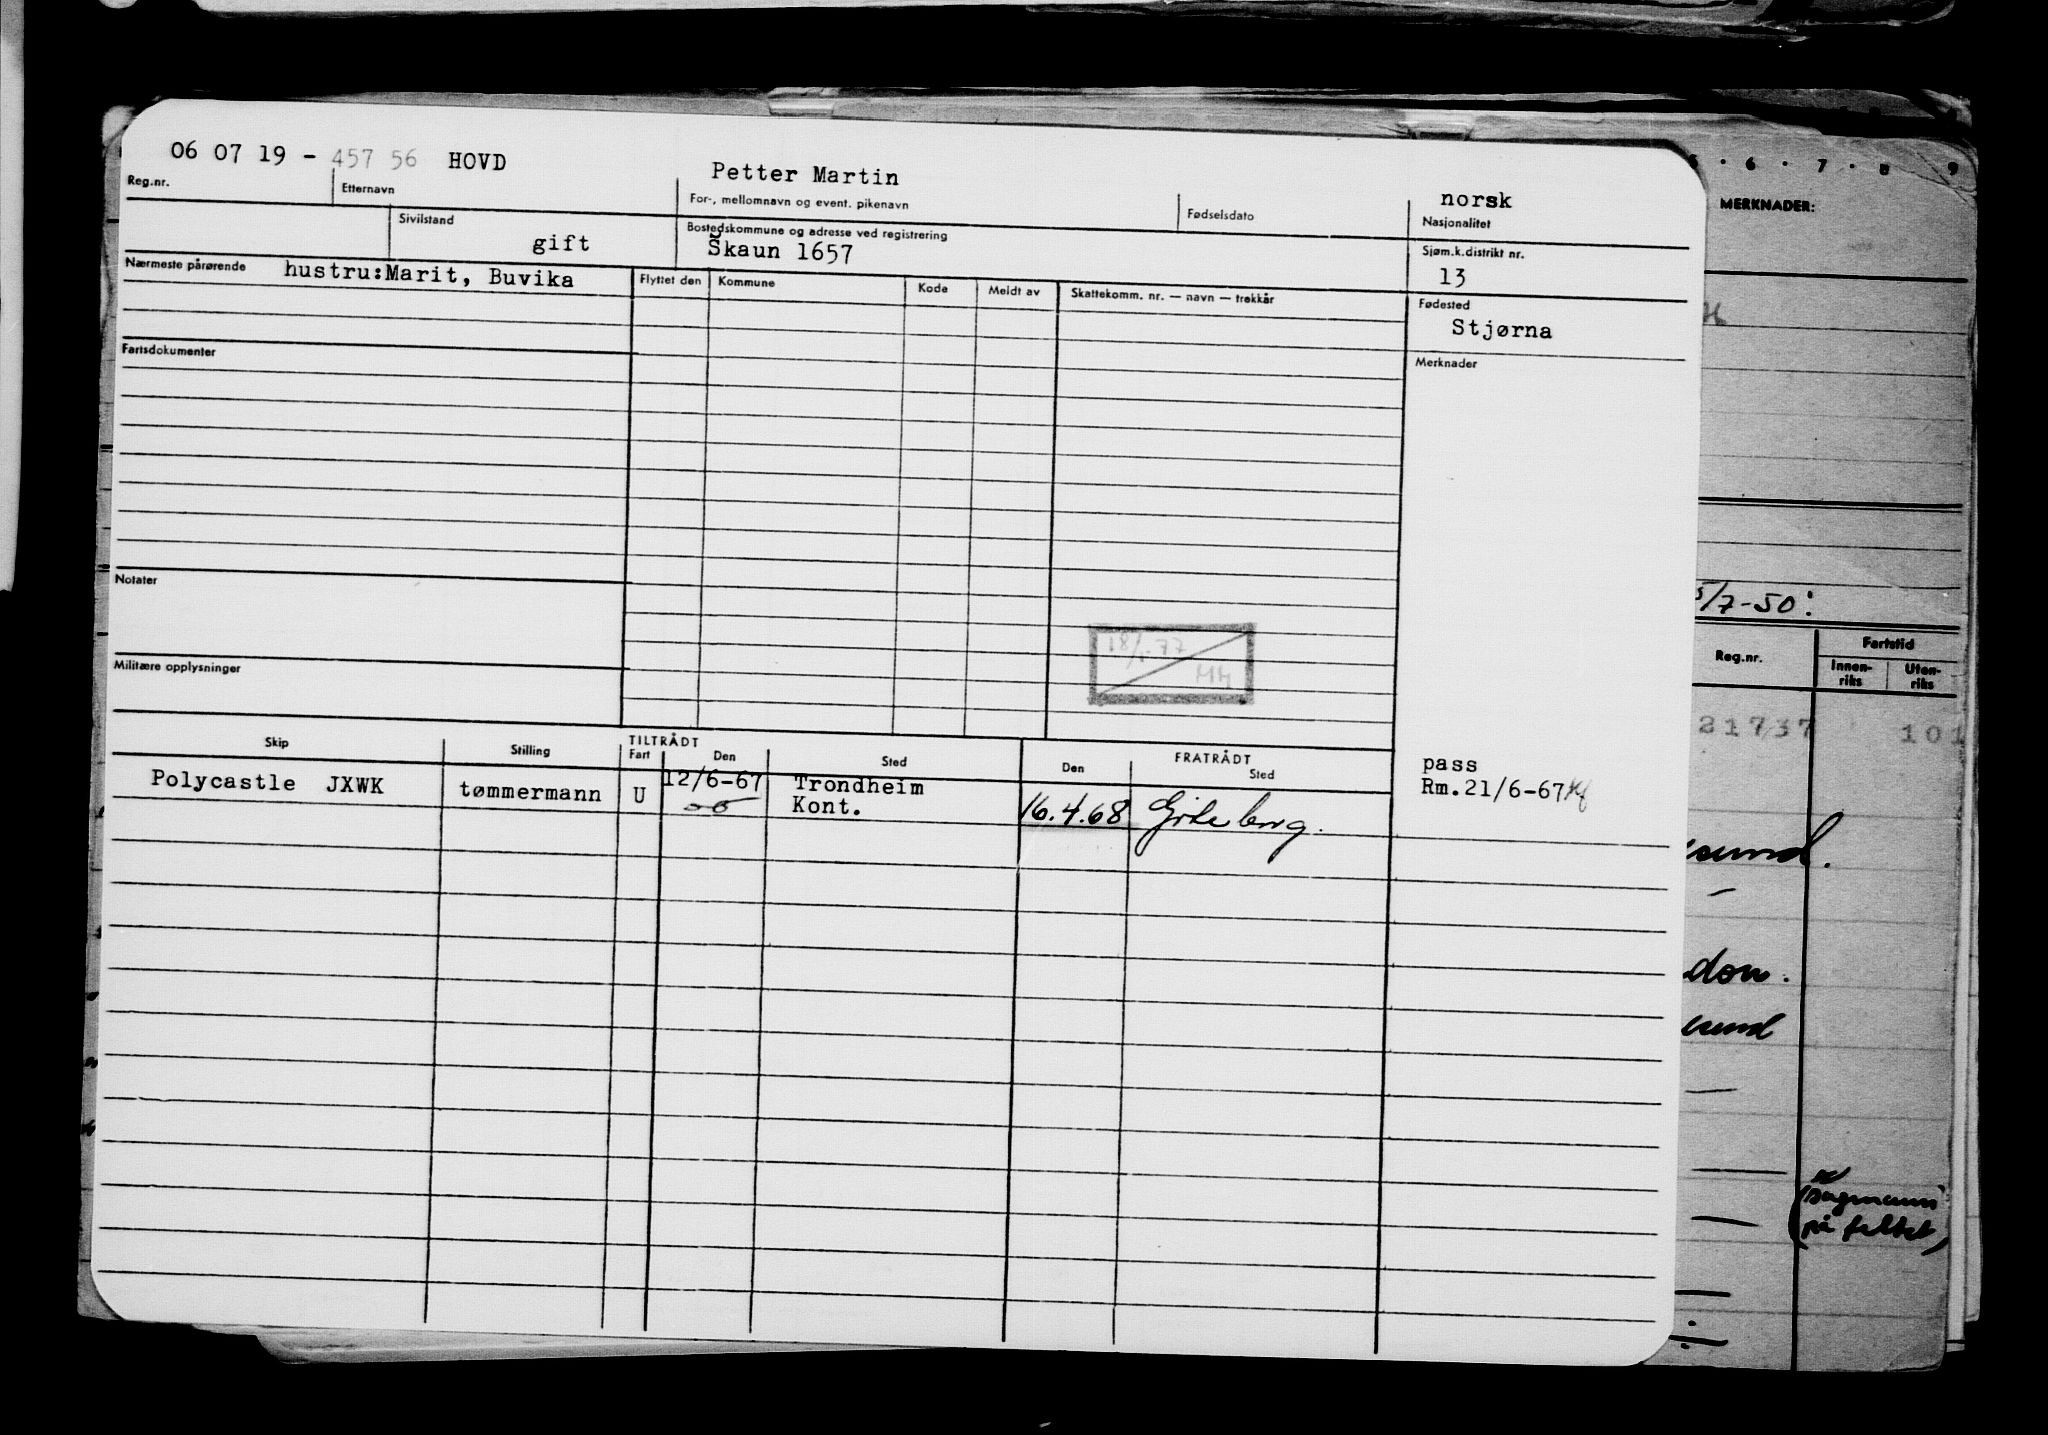 06 07 19 - 457 56 HOVD Petter Martin norsk
Reg.nr. Etternavn For-, mellomnavn og event. pikenavn Fødselsdato Nasjonalitet
Sivilstand gift Bostedskommune og adresse ved registrering Skaun 1657 Sjøm.k.distrikt nr. 13
Nærmeste pårørende hustru:Marit, Buvika Flyttet den Kommune Kode Meldt av Skattekomm. nr. — navn — trekkår Fødested Stjørna
Fartsdokumenter Merknader
Notater
18/1-77
MH
Militære opplysninger
TILTRÅDT FRATRÅDT
Skip Stilling Fart Den Sted Den Sted
Polycastle JXWK tømmermann U 12/6-67 Trondheim 16.4.68 Göteborg. pass
Kont. Rm.21/6-67
5 · 6 · 7 · 8 9
MERKNADER:
5/7-50:
Reg.nr. Fartstid
Innen-riks Uten-riks
21737 101
sund.
don.
sund
på feltet)